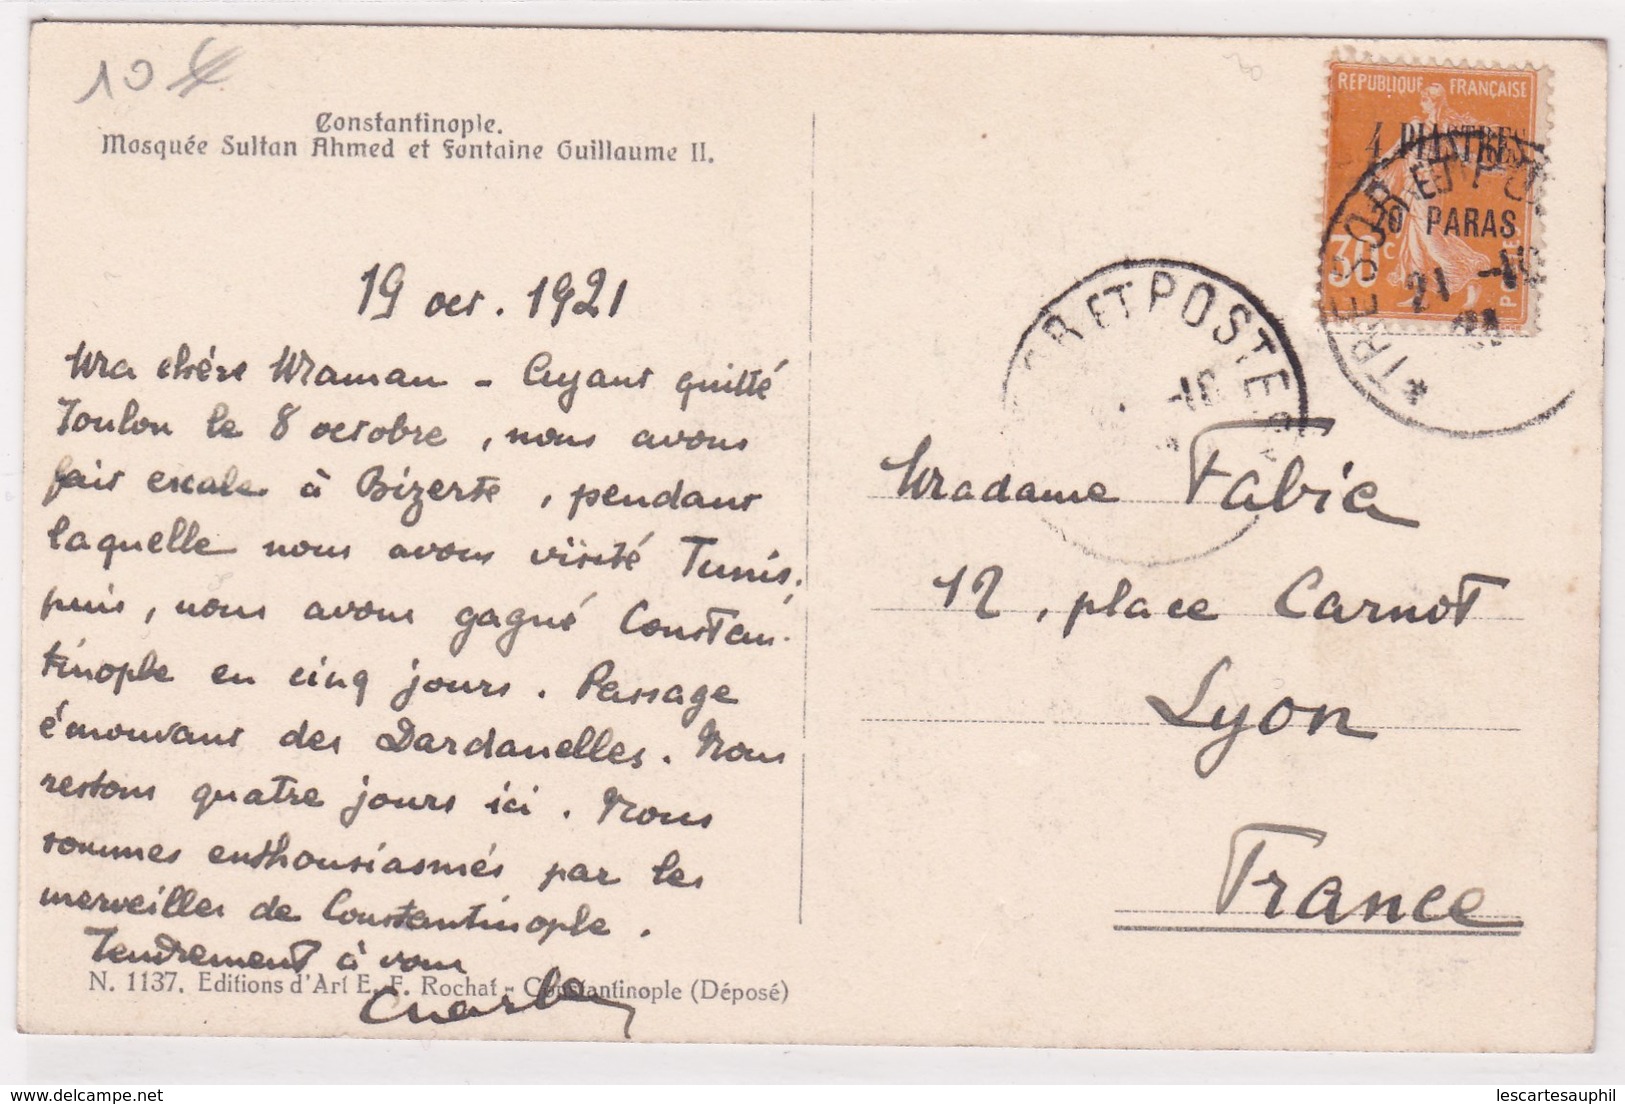 10 €
Constantinople.
Mosquée Sultan Ahmed et Fontaine Guillaume II.
19 oct. 1921
Ma chère Maman - Ayant quitté
Toulon le 8 octobre, nous avons
fait escale à Bizerte, pendant
laquelle nous avons visité Tunis.
puis, nous avons gagné Constan-
tinople en cinq jours. Passage
émouvant des Dardanelles. Nous
restons quatre jours ici. Nous
sommes enthousiasmés par les
merveilles de Constantinople.
Tendrement à vous
Charles
N. 1137. Editions d'Art E. F. Rochat - Constantinople (Déposé)
REPUBLIQUE FRANÇAISE
4 PIASTRES
20 PARAS
30 c
POSTES
TRESOR ET POSTES
21 -10
21
OR ET POSTES
-10
Madame Fabia
12, place Carnot
Lyon
France
lescartesauphil